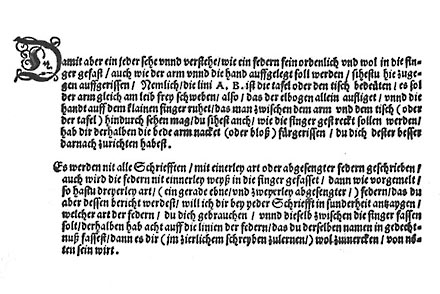 Damit aber ein jeder sehe vnnd verstehe/wie ein federn fein ordenlich vnd wol in die fin-
ger gefast / auch wie der arm vnnd die hand auffgelegt soll werden / sihestu hie zuge-
gen auffgerissen / Nemlich/die lini A, B. ist die tafel oder den tisch bedeüten / es sol
der arm gleich am leib frey schweben/ also / das der elbogen allein aufliget / vnnd die
handt auff dem klainen finger ruhe/das man zwischen dem arm vnd dem tisch (oder
der tafel) hindurch sehen mag/du sihest auch/ wie die finger gestreckt sollen werden/
hab dir derhalben die bede arm nacket (oder bloß) fürgerissen / du dich dester besser
darnach zurichten habest.
Es werden nit alle Schriefften / mit einerley art oder abgesengter federn geschrieben/
auch wird die federn nit einnerley weyß in die finger gefasset/ dann wie vorgemelt/
so hastu dreyerley art/ (ein gerade ebne/vnd zweyerley abgesengter /) federn/das du
aber dessen bericht werdest/ will ich dir bey yeder Schriefft in sunderheit antzaygen/
welcher art der federn / du dich gebrauchen / vnnd dieselb zwischen die finger fassen
solt/derhalben hab acht auff die linien der federn/das du derselben namen in gedecht-
nuß fassest/dann es dir (im zierlichem schreyben zulernen/) wol zumercken / von nö-
ten sein wirt.